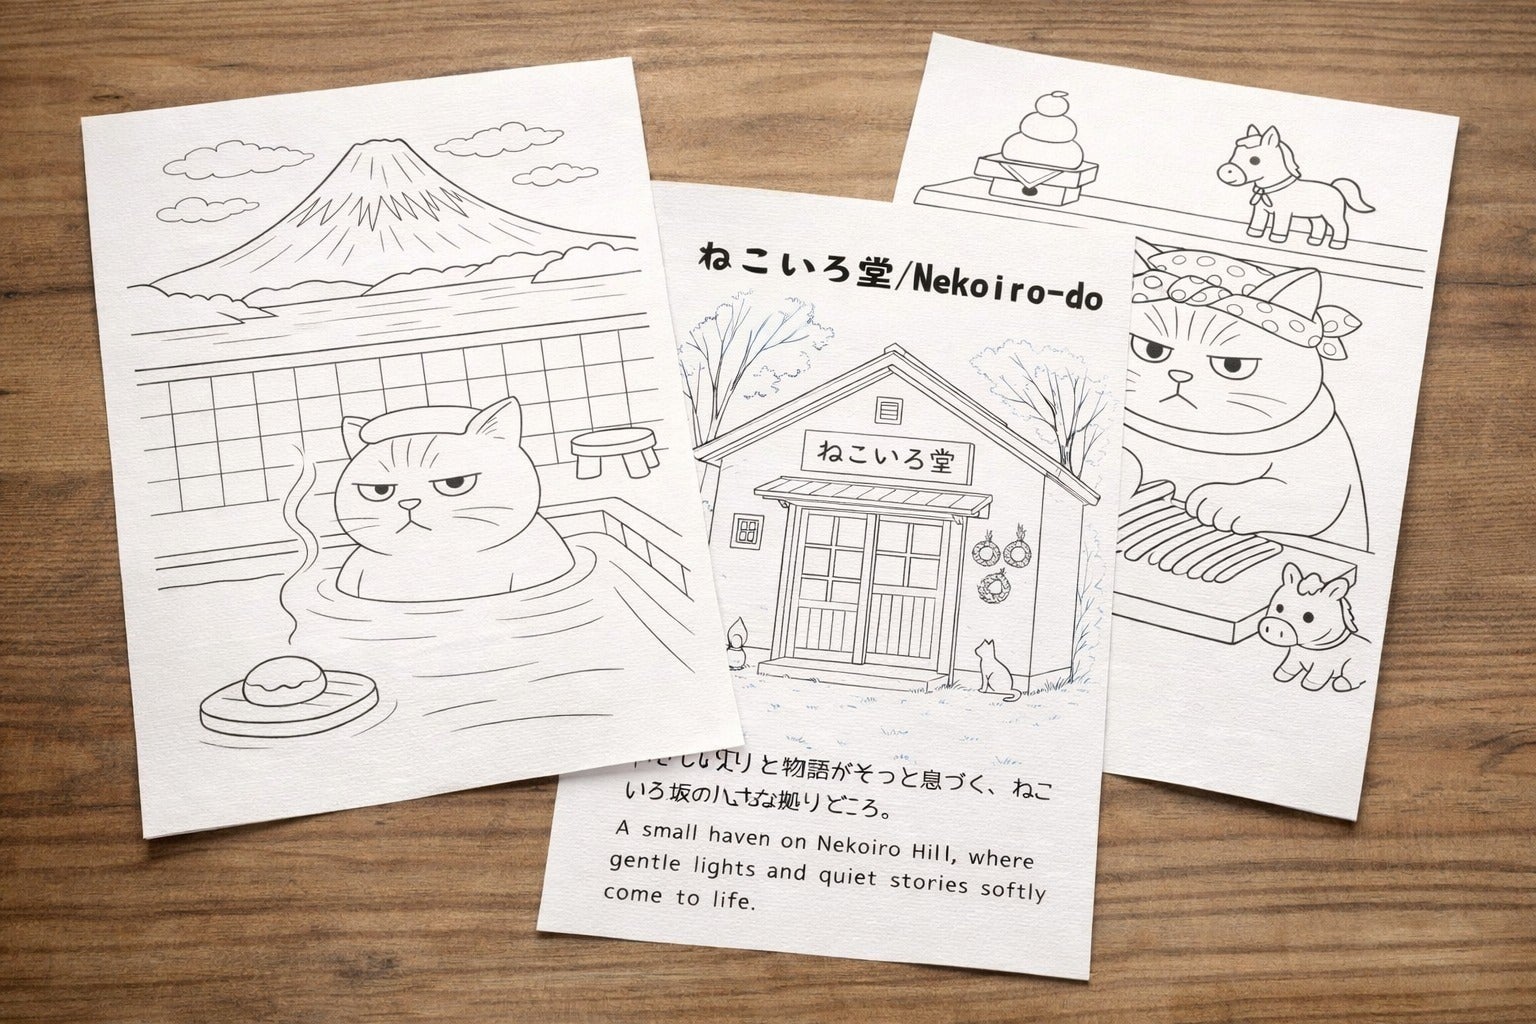 ねこいろ堂/Nekoiro-do
ねこいろ堂
と物語がそっと息づく、ねこ
いろ坂の小さな拠りどころ。
A small haven on Nekoiro Hill, where
gentle lights and quiet stories softly
come to life.